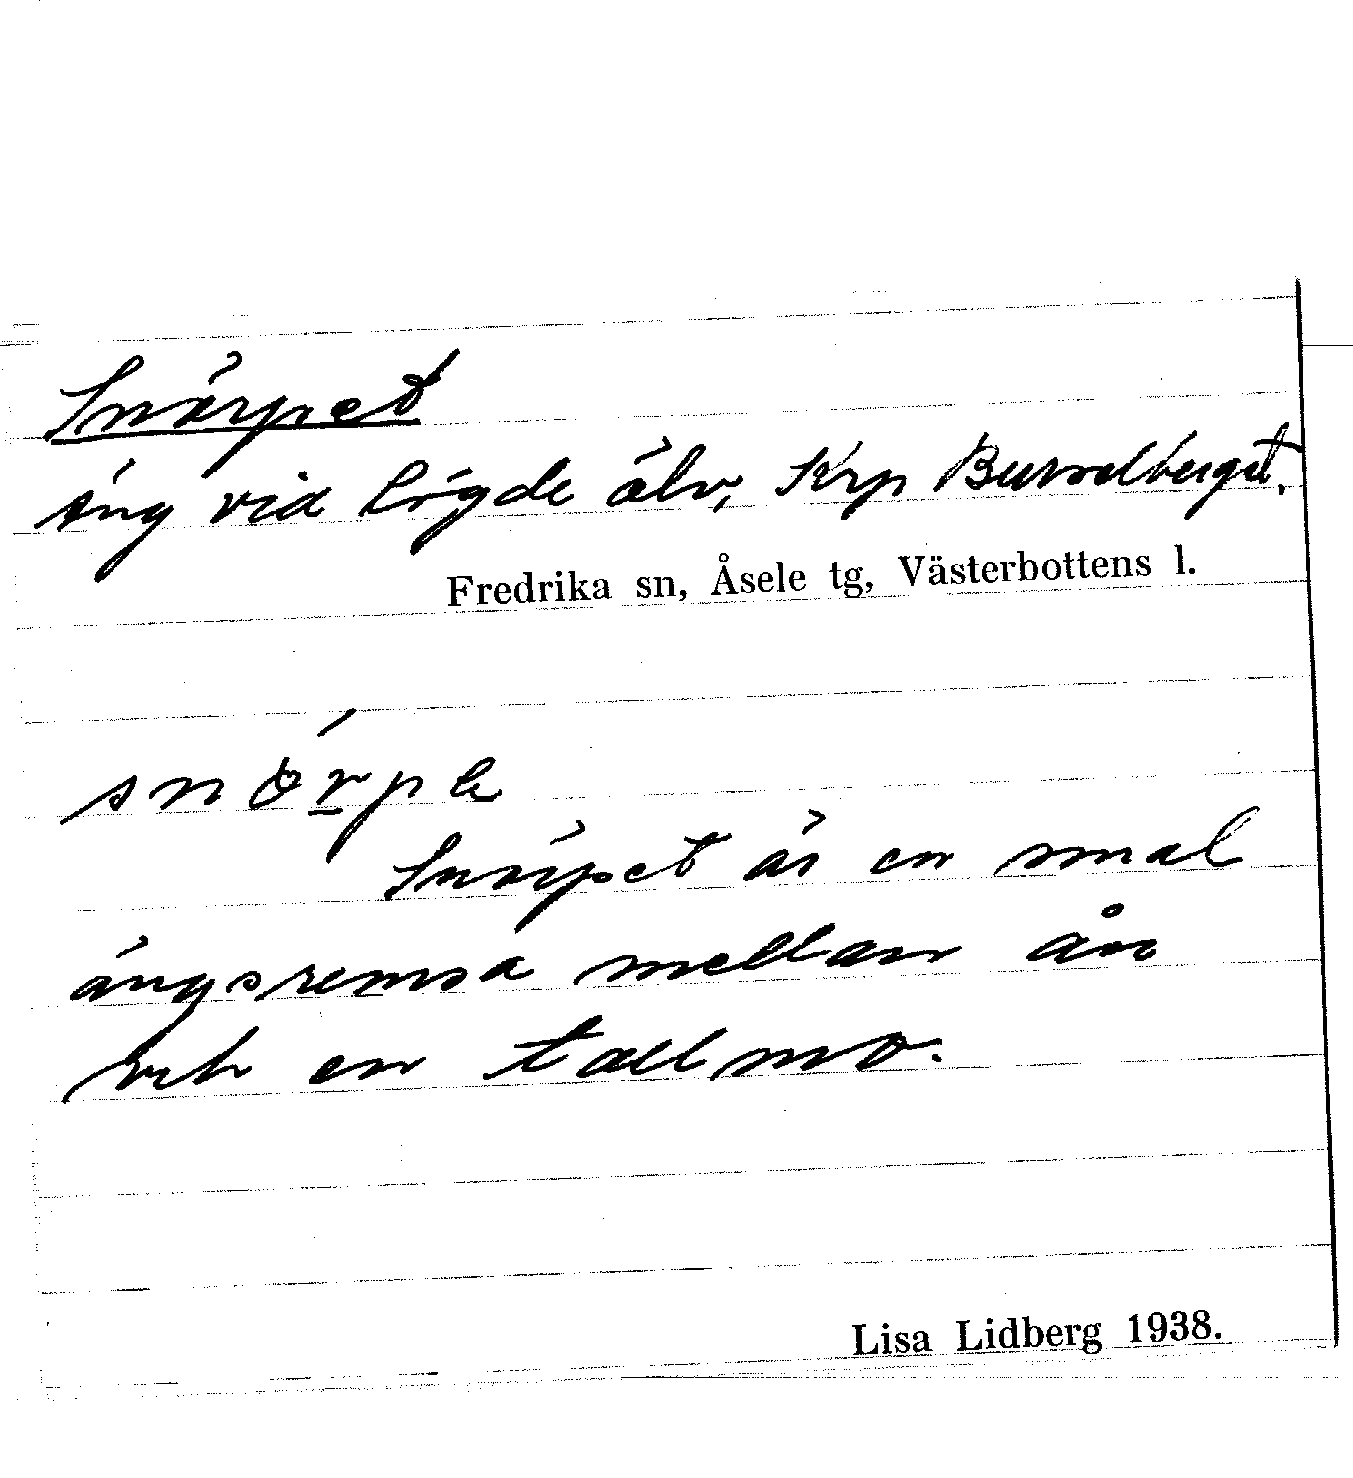 Snörpet
äng vid Lögde älv, Krp Buvodberget.
Fredrika sn, Åsele tg, Västerbottens l.
snörpe
Snörpet är en smal
ängsremsa mellan ån
och en tallmo.
Lisa Lidberg 1938.